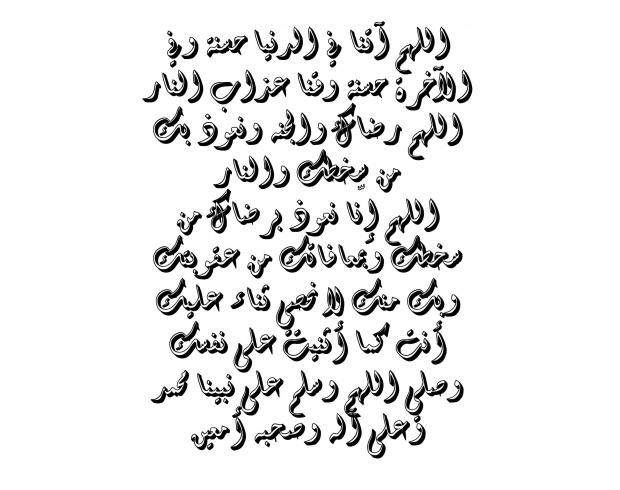 اللهم آتنا في الدنيا حسنة وفي
الآخرة حسنة وقنا عذاب النار
اللهم رضاك والجنه ونعوذ بك
من سخطك والنار
اللهم إنا نعوذ برضاك من
سخطك وبمعافاتك من عقوبتك
وبك منك لا نحصي ثناء عليك
أنت كما أثنيت على نفسك
وصلى اللهم وسلم على نبينا محمد
وعلى آله وصحبه أمعين